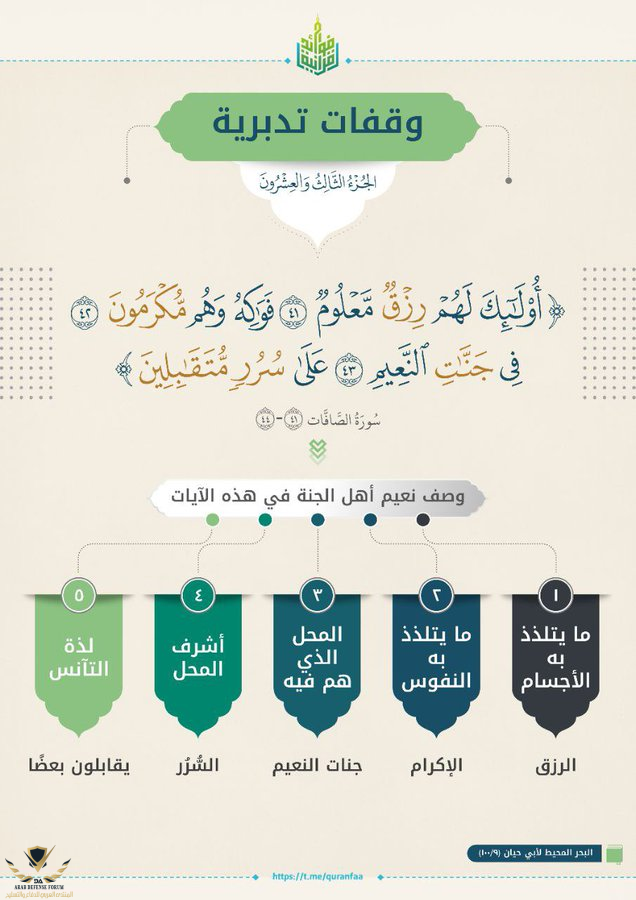 فوائد
قرآنية
وقفات تدبرية
الجُزْءُ الثَّالِثُ وَالعِشْرُونَ
﴿ أُوْلَٰٓئِكَ لَهُمْ رِزْقٌ مَّعْلُومٌ ٤١ فَوَٰكِهُ وَهُم مُّكْرَمُونَ ٤٢
فِى جَنَّٰتِ ٱلنَّعِيمِ ٤٣ عَلَىٰ سُرُرٍ مُّتَقَٰبِلِينَ ﴾
سُورَةُ الصَّافَّات ٤١-٤٤
وصف نعيم أهل الجنة في هذه الآيات
١
ما يتلذذ
به
الأجسام
الرزق
٢
ما يتلذذ
به
النفوس
الإكرام
٣
المحل
الذي
هم فيه
جنات النعيم
٤
أشرف
المحل
السُّرُر
٥
لذة
التآنس
يقابلون بعضًا
البحر المحيط لأبي حيان (١٠٠/٩)
https://t.me/quranfaa
DA
ARAB DEFENSE FORUM
المنتدى العربي للدفاع والتسليح